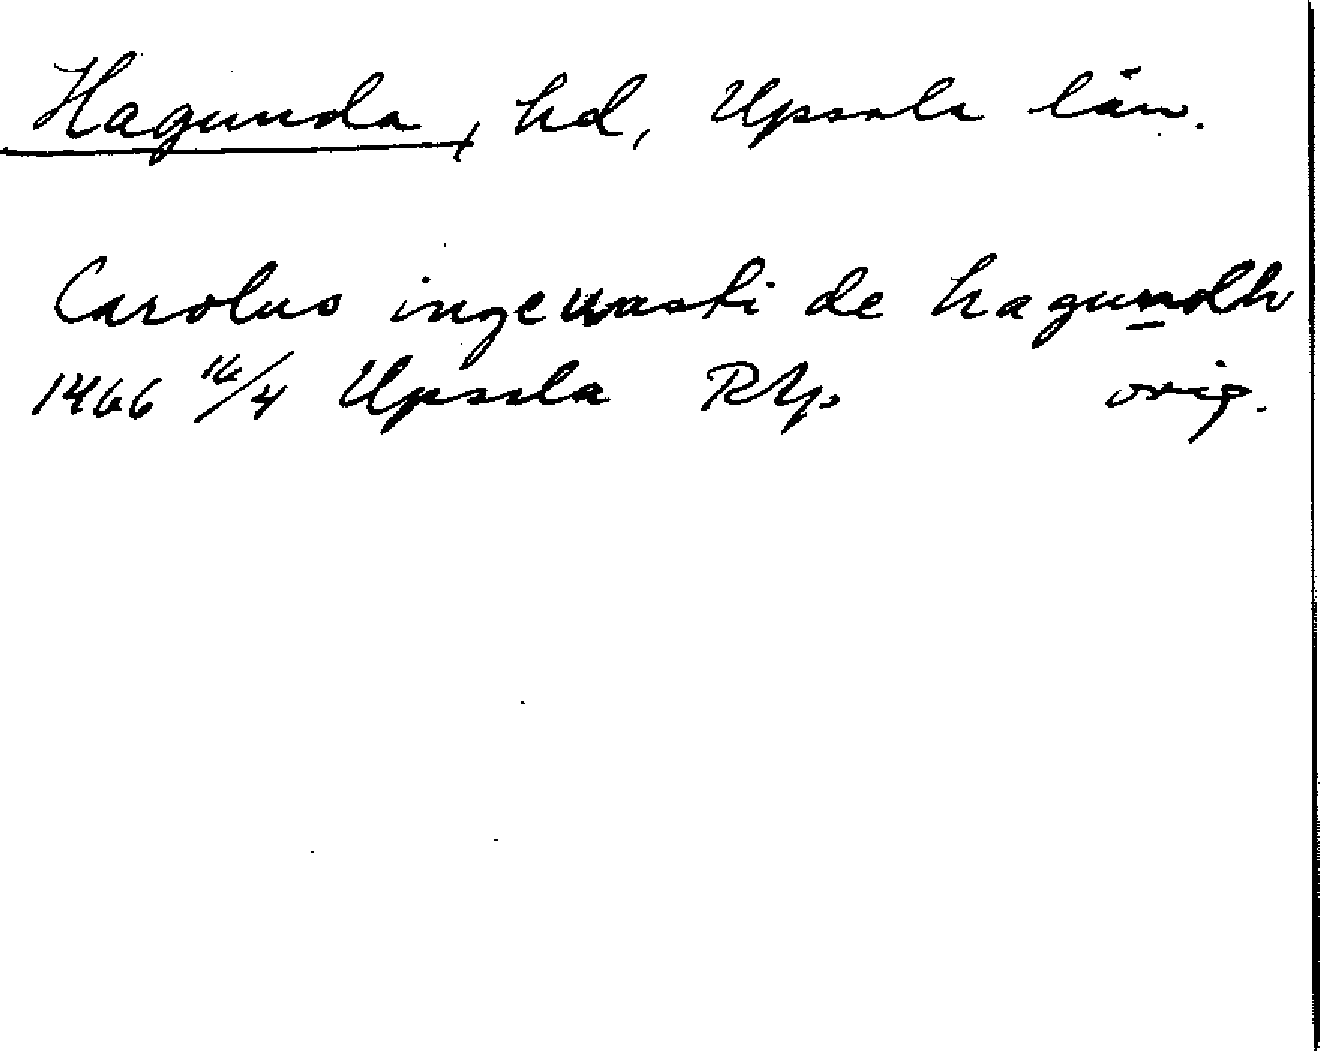 Hagunda, hd, Upsala län.
Carolus ingewasti de hagundh
1466 16/4 Upsala RAp orig.